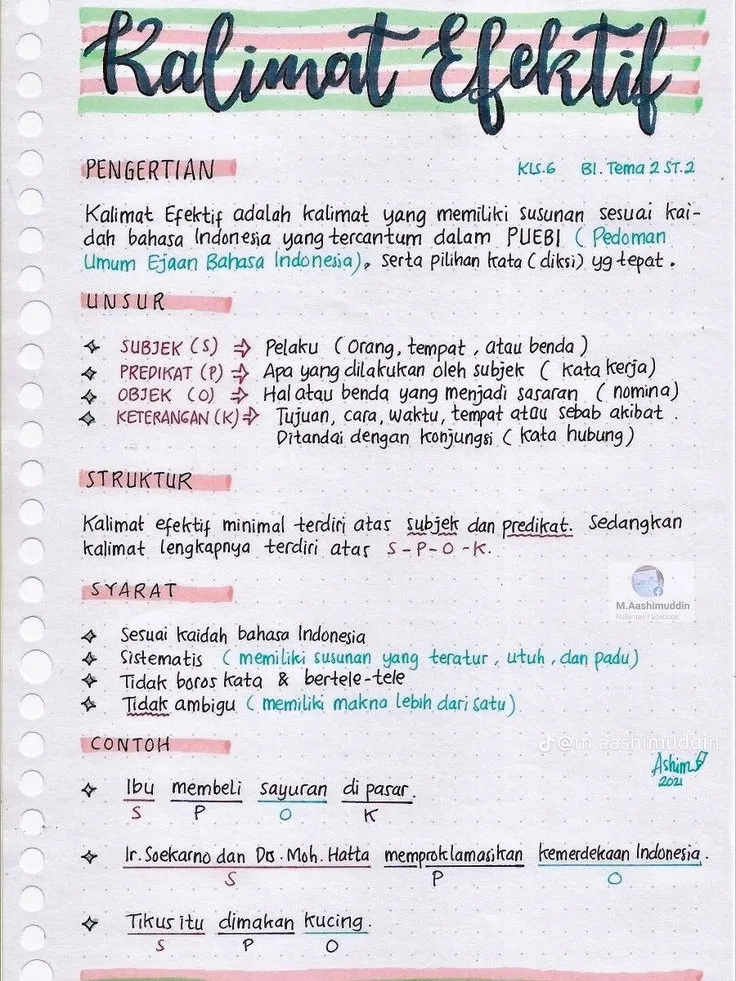 Kalimat Efektif
PENGERTIAN
KLS.6 BI. Tema 2 ST.2
Kalimat Efektif adalah kalimat yang memiliki susunan sesuai kai-
dah bahasa Indonesia yang tercantum dalam PUEBI ( Pedoman
Umum Ejaan Bahasa Indonesia), serta pilihan kata (diksi) yg tepat.
UNSUR
SUBJEK (S) ⇒ Pelaku ( Orang, tempat, atau benda )
PREDIKAT (P) ⇒ Apa yang dilakukan oleh subjek ( kata kerja)
OBJEK (O) ⇒ Hal atau benda yang menjadi sasaran ( nomina)
KETERANGAN (K) ⇒ Tujuan, cara, waktu, tempat atau sebab akibat.
Ditandai dengan konjungsi ( kata hubung)
STRUKTUR
Kalimat efektif minimal terdiri atas subjek dan predikat. Sedangkan
kalimat lengkapnya terdiri atas S-P-O-K.
M.Aashimuddin
Halaman Facebook
SYARAT
Sesuai kaidah bahasa Indonesia
Sistematis ( memiliki susunan yang teratur, utuh, dan padu)
Tidak boros kata & bertele-tele
Tidak ambigu ( memiliki makna lebih dari satu)
CONTOH
@m.aashimuddin
Ashim
2021
Ibu membeli sayuran di pasar.
S P O K
Ir. Soekarno dan Drs. Moh. Hatta memproklamasikan kemerdekaan Indonesia.
S P O
Tikus itu dimakan kucing.
S P O